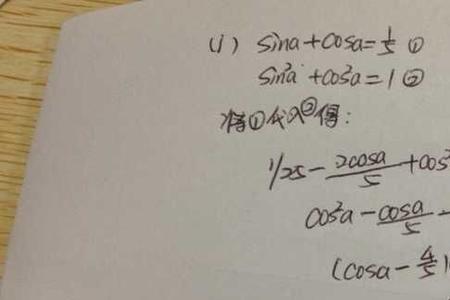 (1) sina+cosa=1/5 ①
sin²a+cos²a=1 ②
将①代入②得:
1/25-2cosa/5+cos²
cos²a-cosa/5-
(cosa-4/5)